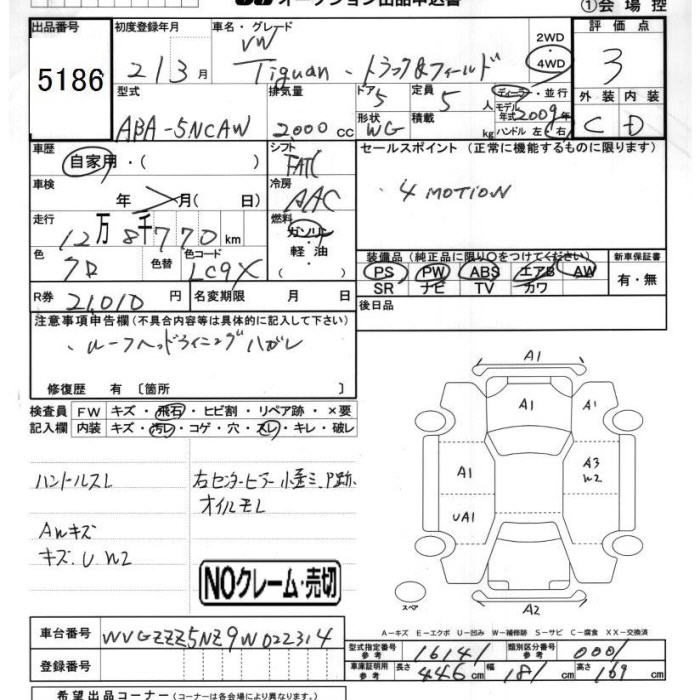 オークション出品申込書 ①会場控
出品番号 初度登録年月 車名・グレード 2WD 評価点
5186 21 3月 VW 4WD 3
Tiguan・トラック&フィールド
型式 排気量 ドア 定員 ディーラー・並行 外装 内装
ABA-5NCAW 2000cc 5 5人 モデル年式2009年 C D
形状 WG 積載 kg ハンドル 左・右
車歴 シフト セールスポイント (正常に機能するものに限ります)
自家用・( ) FATC
・4MOTION
車検 冷房
年 月( 日) AAC
走行 燃料
12万8千770km ガソリン
色 色替 色コード 軽油 装備品(純正品に限り○をつけてください) 新車保証書
クロ LC9X ( ) PS PW ABS エアB AW 有・無
SR ナビ TV カワ
R券 21,010円 名変期限 月 日 後日品
注意事項申告欄(不具合内容等は具体的に記入して下さい)
・ルーフヘッドライニングハガレ
修復歴 有〔箇所 〕
検査員 FW キズ・飛石・ヒビ割・リペア跡・×要
記入欄 内装 キズ・汚レ・コゲ・穴・スレ・キレ・破レ
A1
A1 A1
A1 A3 W2
UA1
A2
スペア
ハンドルスレ 右センターピラー小歪ミ、P跡、
オイルモレ
AWキズ
キズ.U W2
NOクレーム・売切
A-キズ E-エクボ U-凹み W-補修跡 S-サビ C-腐食 XX-交換済
車台番号 WVGZZZ5NZ9W022314 型式指定番号 参考 16141 類別区分番号 参考 0001
登録番号 車庫証明用 参考 長さ 446cm 幅 181cm 高さ 169cm
希望出品コーナー(コーナーは各会場により異なります。)